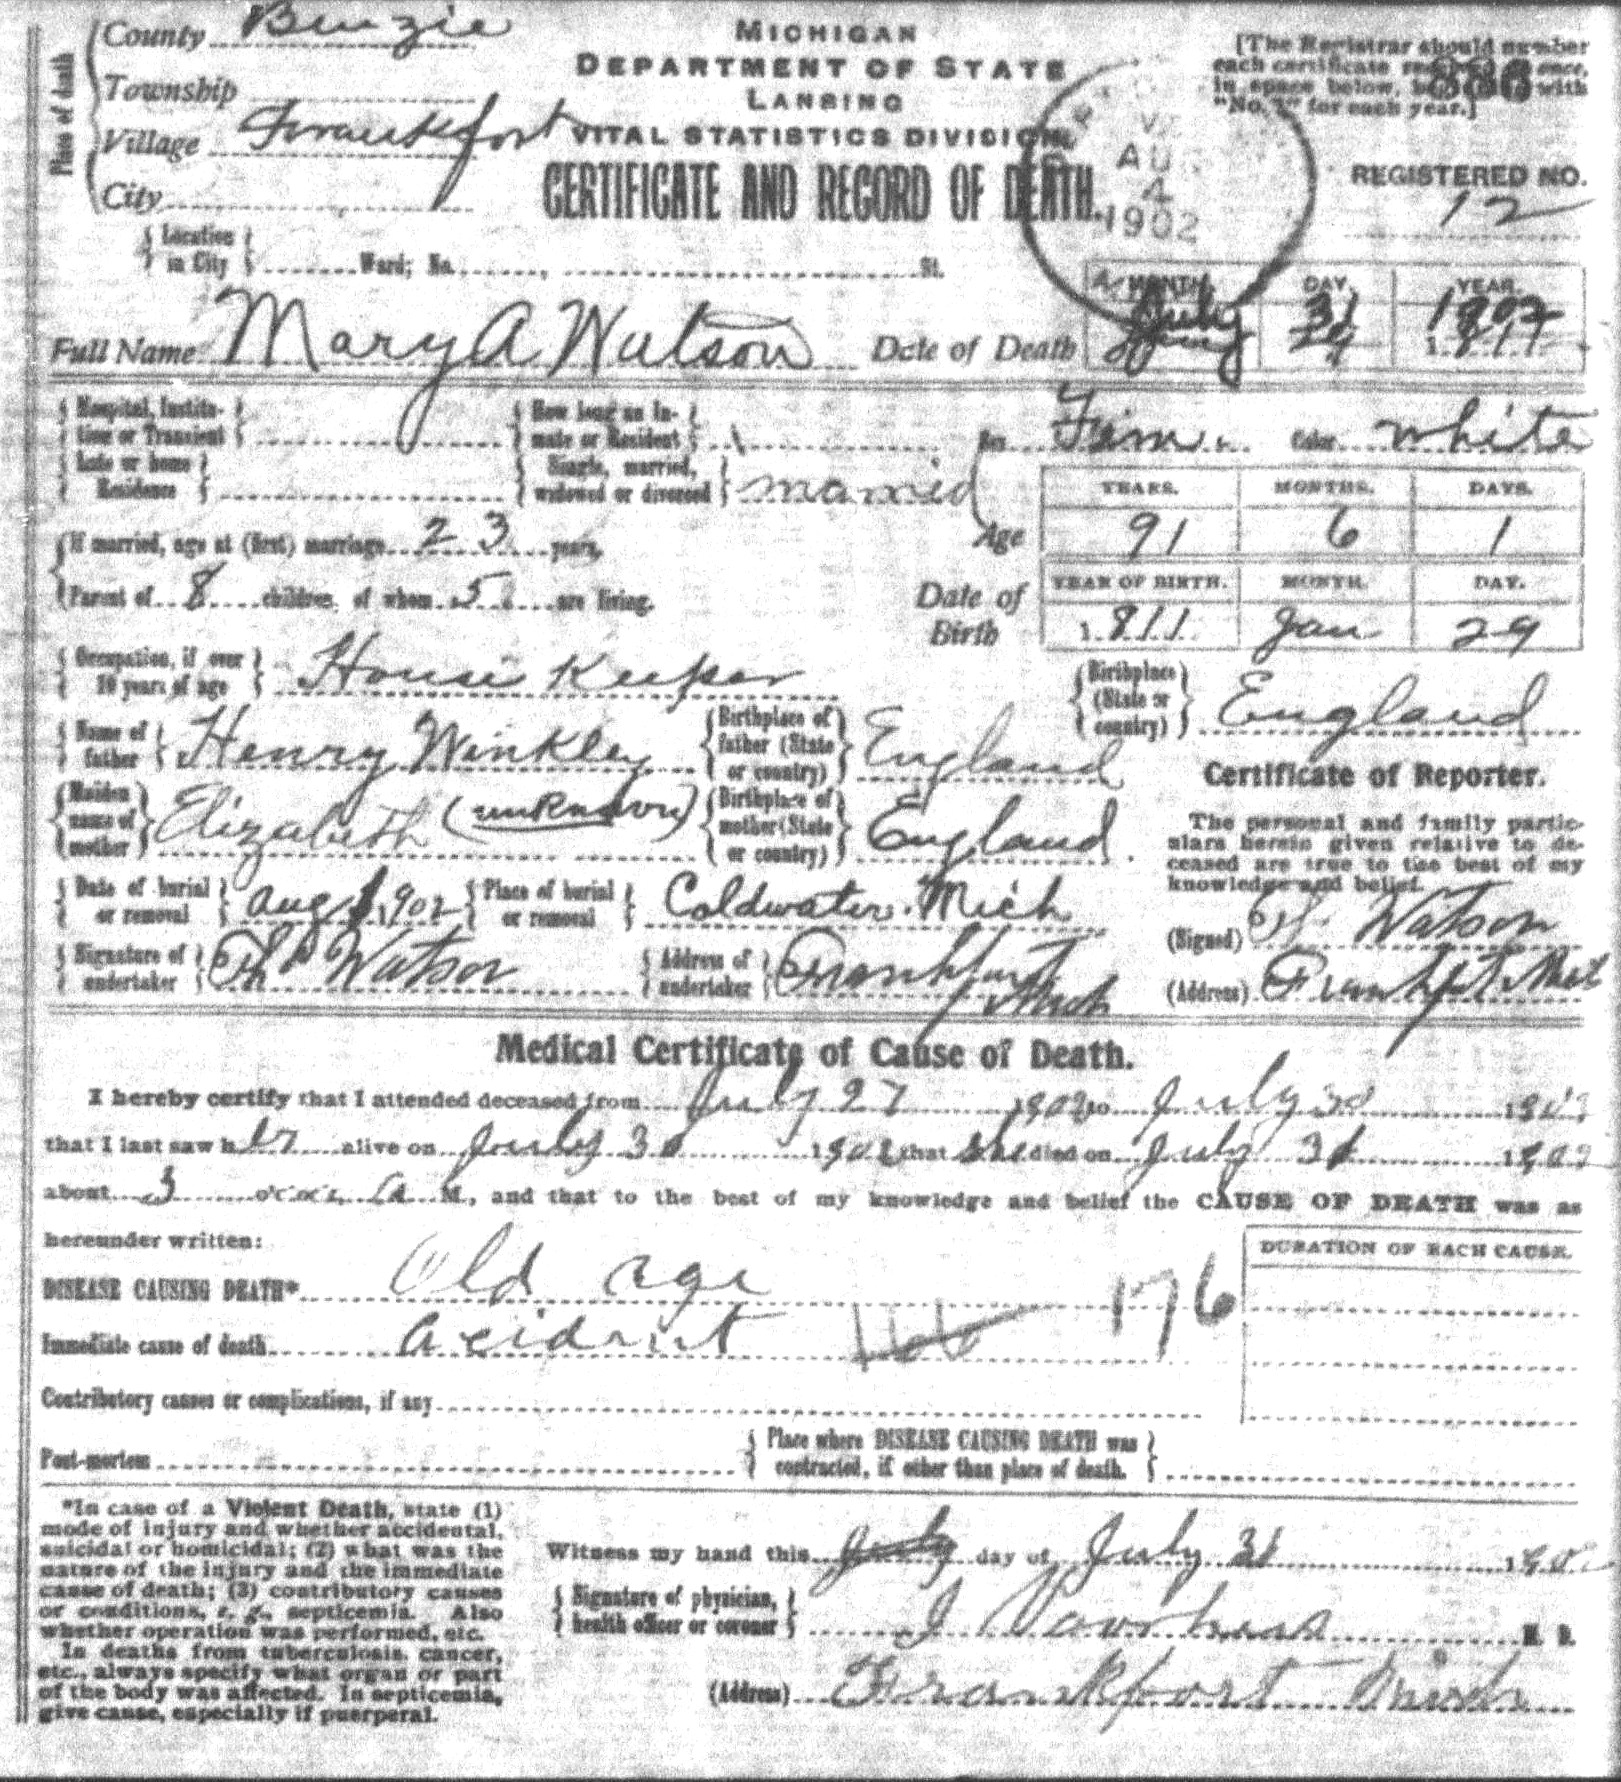 Place of death
County Benzie
Township
Village Frankfort
City
MICHIGAN
DEPARTMENT OF STATE
LANSING
VITAL STATISTICS DIVISION
CERTIFICATE AND RECORD OF DEATH.
[The Registrar should number
each certificate
in space below, with
"No. 1" for each year.]
AUG
4
1902
REGISTERED NO.
12
Location in City Ward; No. , St.
Full Name Mary A Watson Date of Death
MONTH. DAY. YEAR.
July 31 1902
29 1811
Hospital, Institution or Transient How long an Inmate or Resident Sex Fem. Color White
Late or home Residence Single, married, widowed or divorced married
Age YEARS. MONTHS. DAYS.
91 6 1
If married, age at (first) marriage 23 years.
Parent of 8 children, of whom 5 are living.
Date of Birth YEAR OF BIRTH. MONTH. DAY.
1811 Jan 29
Occupation, if over 10 years of age House Keeper
Birthplace (State or country) England
Name of father Henry Winkley Birthplace of father (State or country) England
Maiden name of mother Elizabeth (unknown) Birthplace of mother (State or country) England
Date of burial or removal Aug 1 1902 Place of burial or removal Coldwater Mich
Signature of undertaker Watson Address of undertaker Frankfort Mich
Certificate of Reporter.
The personal and family partic-
ulars herein given relative to de-
ceased are true to the best of my
knowledge and belief.
(Signed) Watson
(Address) Frankfort Mich
Medical Certificate of Cause of Death.
I hereby certify that I attended deceased from July 27 1902 to July 30 1902
that I last saw her alive on July 30 1902 that she died on July 31 1902
about 3 o'clock A M., and that to the best of my knowledge and belief the CAUSE OF DEATH was as
hereunder written:
DURATION OF EACH CAUSE.
DISEASE CAUSING DEATH* Old age
176
Immediate cause of death acident
Contributory causes or complications, if any
Post-mortem Place where DISEASE CAUSING DEATH was contracted, if other than place of death.
*In case of a Violent Death, state (1)
mode of injury and whether accidental,
suicidal or homicidal; (2) what was the
nature of the injury and the immediate
cause of death; (3) contributory causes
or conditions, e. g., septicemia. Also
whether operation was performed, etc.
In deaths from tuberculosis, cancer,
etc., always specify what organ or part
of the body was affected. In septicemia,
give cause, especially if puerperal.
Witness my hand this July day of July 31 190
Signature of physician, health officer or coroner J Voorheis M. D.
(Address) Frankfort Mich